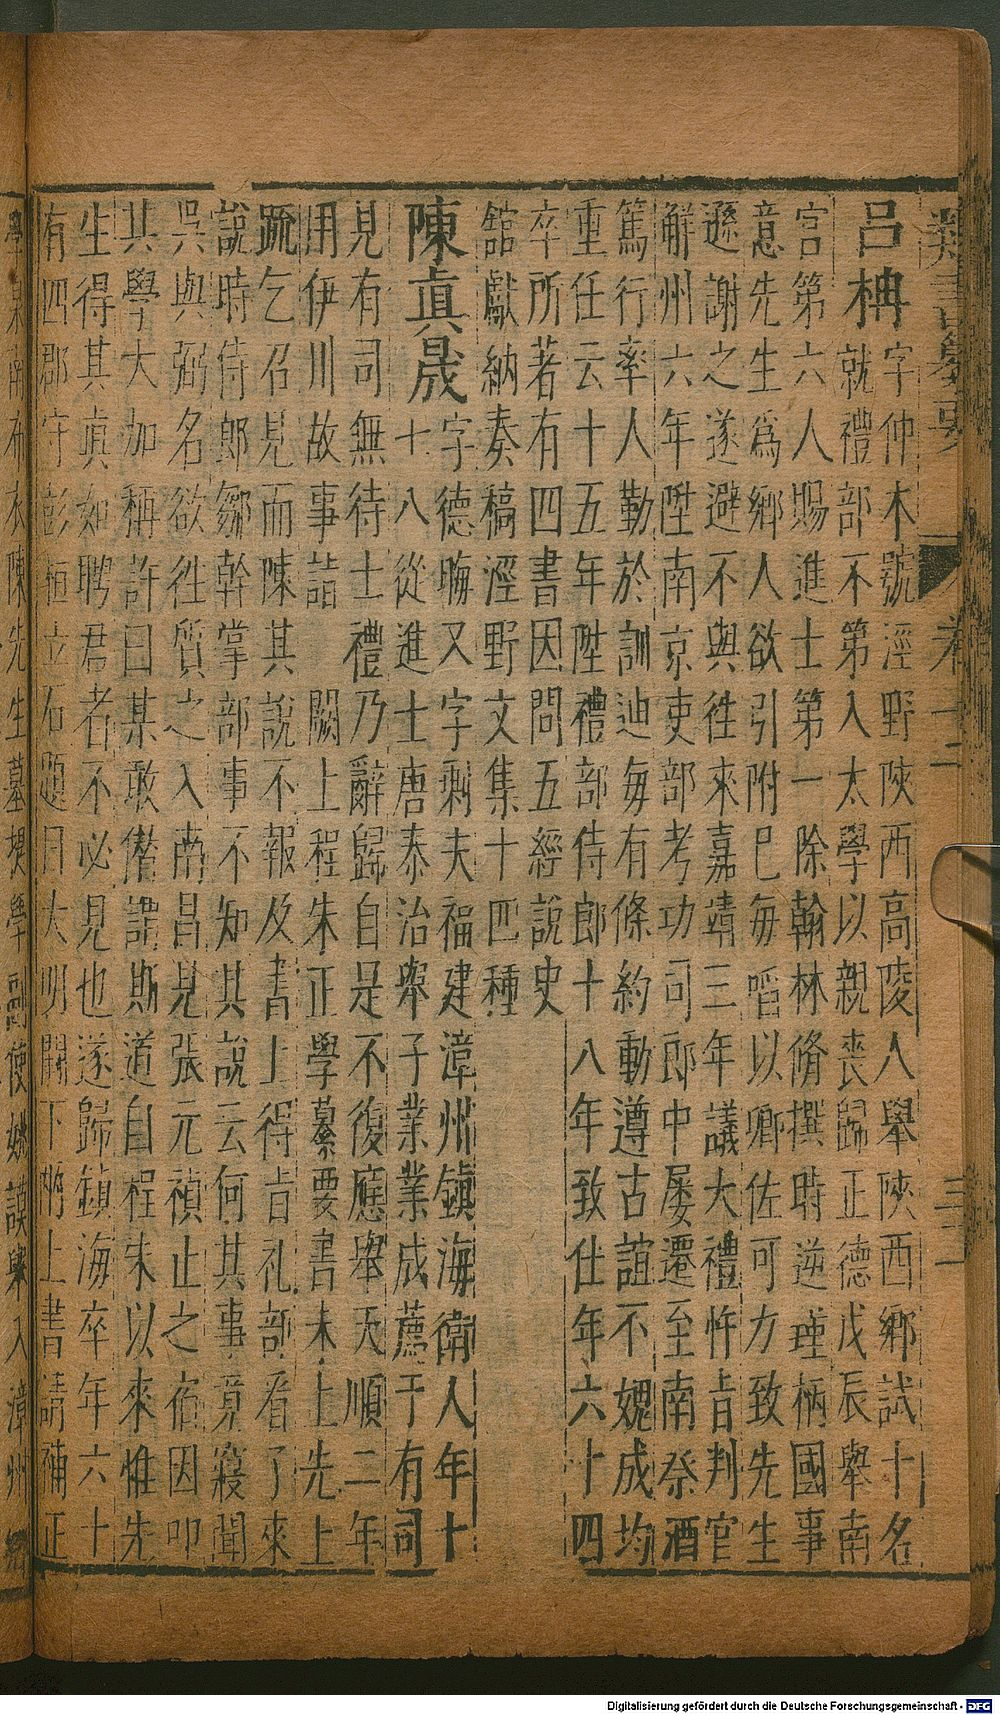 類書纂要 卷十二 三二
呂柟
字仲木號涇野陝西高陵人舉陝西鄉試十名
就禮部不第入太學以親喪歸正德戊辰舉南
宮第六人賜進士第一除翰林脩撰時逆瑾柄國事
意先生爲鄉人欲引附巳每㗖以卿佐可力致先生
遜謝之遂避不與徃來嘉靖三年議大禮忤旨判官
解州六年陞南京吏部考功司郎中屢遷至南祭酒
篤行率人勤於訓迪每有條約動遵古誼不媿成均
重任云十五年陞禮部侍郎十八年致仕年六十四
卒所著有四書因問五經說史
舘獻納奏稿涇野文集十四種
陳眞晟
字德晦又字剩夫福建漳州鎮海衛人年十
十八從進士唐泰治舉子業業成薦于有司
見有司無待士禮乃辭歸自是不復應舉天順二年
用伊川故事詣 闕上程朱正學纂要書未上先上
疏乞召見而陳其說不報及書上得旨礼部看了來
說時侍郎鄒幹掌部事不知其說云何其事竟寢聞
吳與弼名欲徃質之入南昌見張元禎止之宿因叩
其學大加稱許曰某敢僭謂斯道自程朱以來惟先
生得其眞如聘君者不必見也遂歸鎮海卒年六十
有四郡守彭桓立石題曰大明闕下兩上書請補正
學泉南布衣陳先生墓提學副使姚謨舉入漳州
Digitalisierung gefördert durch die Deutsche Forschungsgemeinschaft - DFG